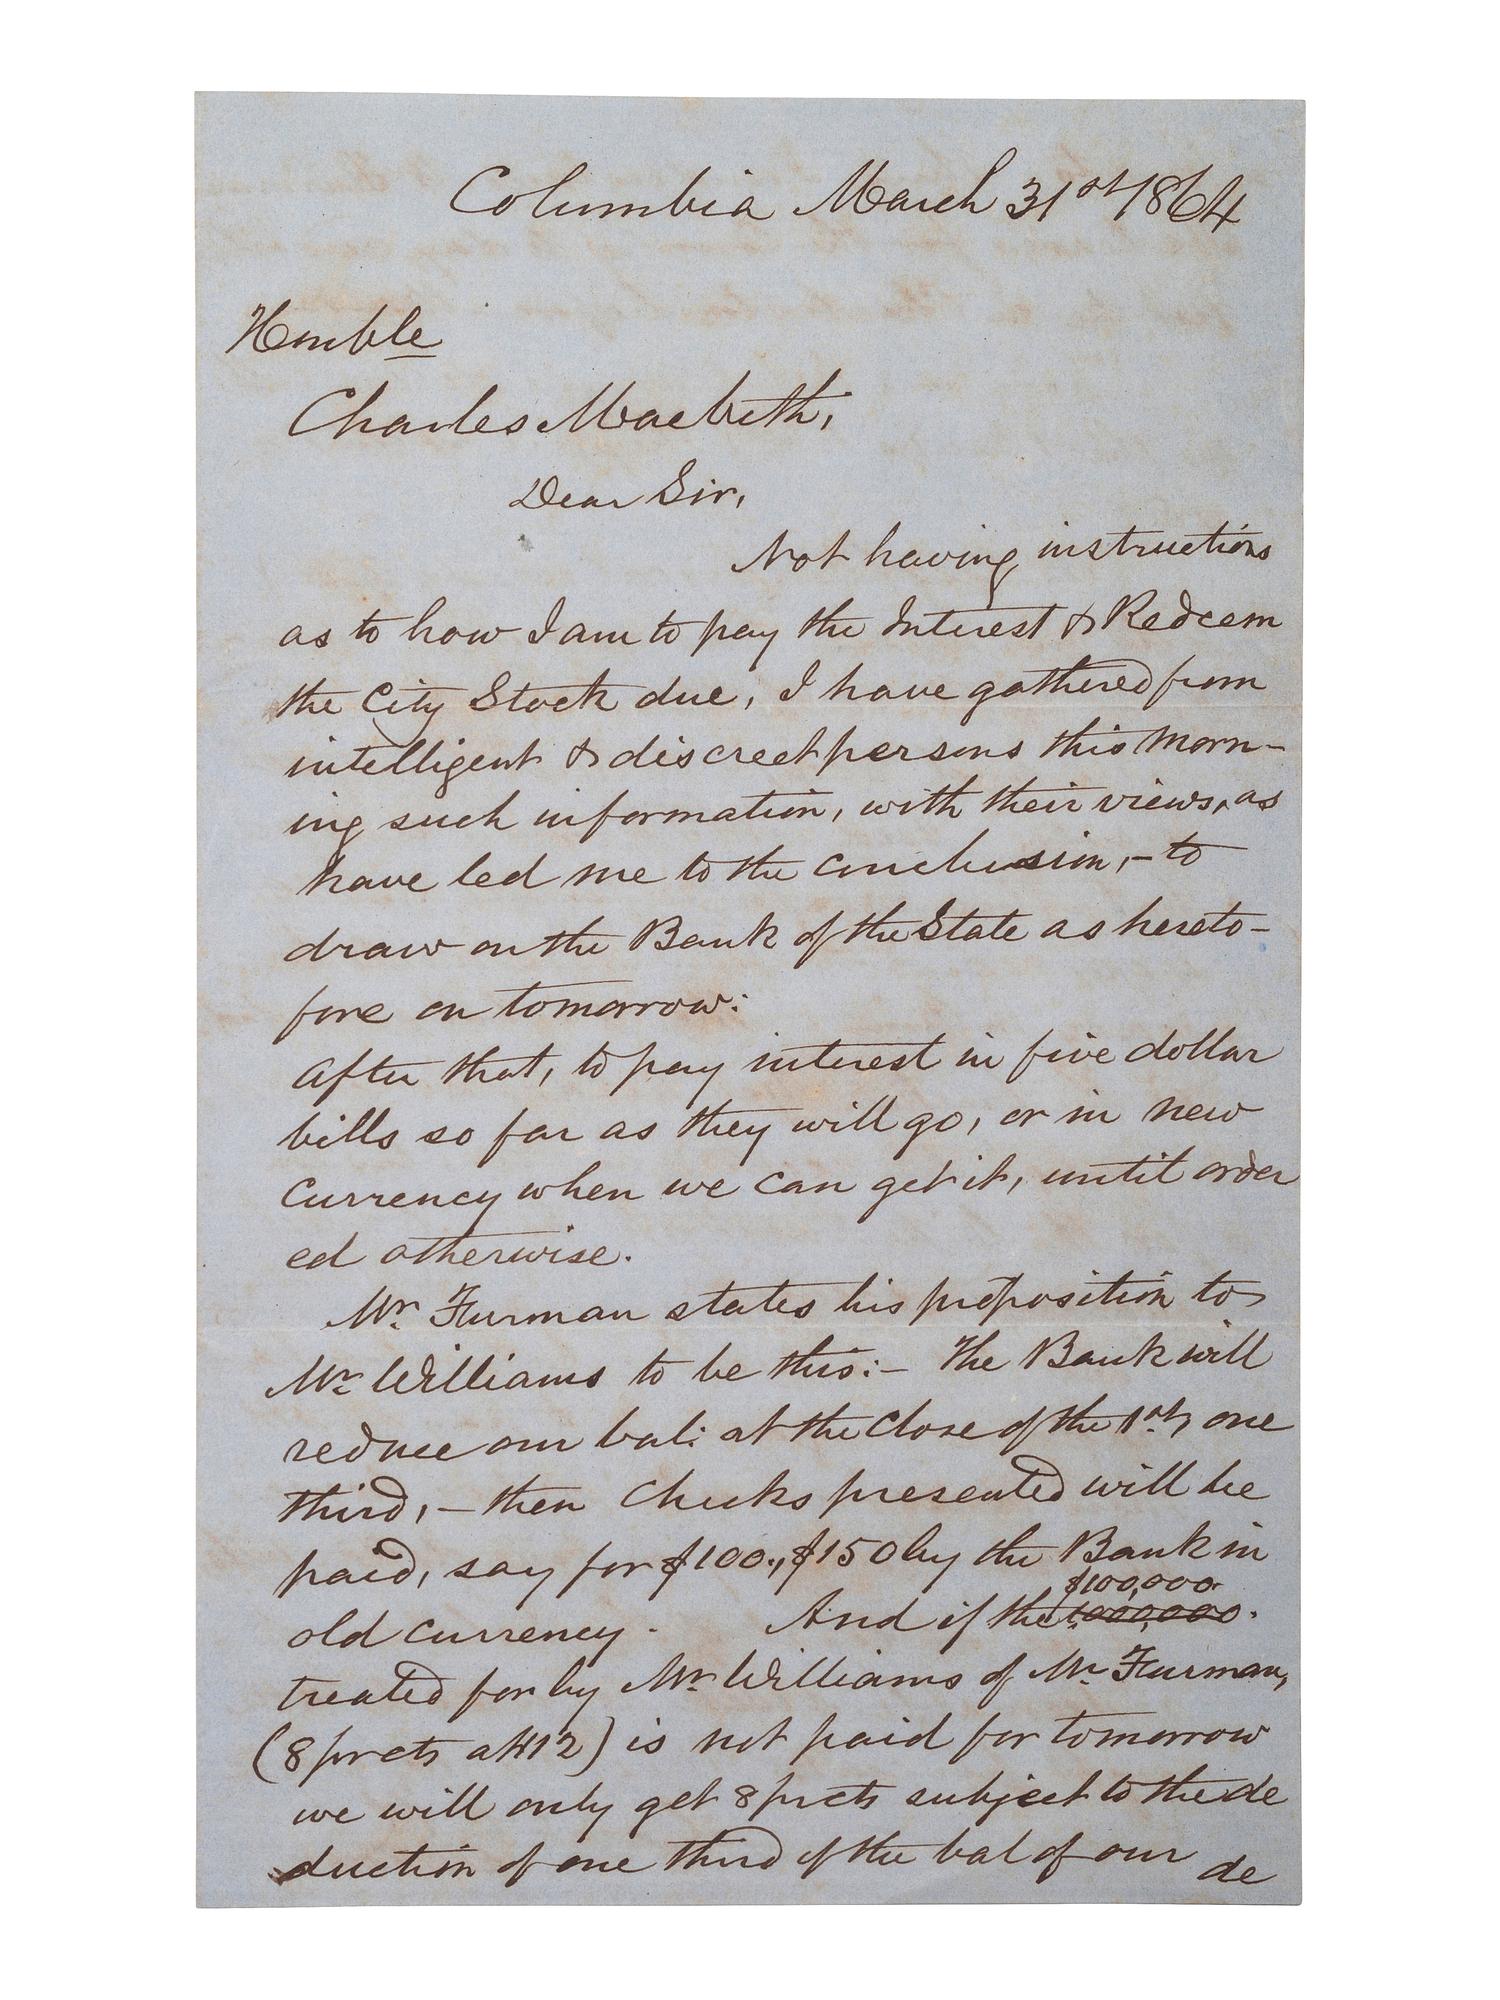 Columbia March 31st 1864
Honble
Charles Macbeth,
Dear Sir,
Not having instructions
as to how I am to pay the Interest & Redeem
the City Stock due, I have gathered from
intelligent & discreet persons this morn-
ing such information, with their views, as
have led me to the conclusion, - to
draw on the Bank of the State as hereto-
fore on tomorrow:
After that, to pay interest in five dollar
bills so far as they will go, or in new
currency when we can get it, until order
ed otherwise.
Mr. Furman states his proposition to
Mr Williams to be this:- The Bank will
reduce our bal: at the close of the 1st, one
third, - then Checks presented will be
paid, say for $100., $150 by the Bank in
old currency. And if the $100,000 1000,000.
treated for by Mr Williams of Mr. Furman,
(8 prcts at 12) is not paid for tomorrow
we will only get 8 prcts subject to the de
duction of one third of the bal of our de